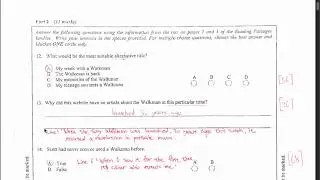 Part 2 (12 marks)
Answer the following questions using the information from the text on pages 3 and 4 of the Reading Passages
booklet. Write your answers in the spaces provided. For multiple-choice questions, choose the best answer and
blacken ONE circle only.
12. What would be the most suitable alternative title?
A. My week with a Walkman
B. The Walkman is back
C. My memories of the Walkman
D. My teenage son tests a Walkman
A B C D
13. Why did this website have an article about the Walkman at this particular time?
launched 30 years ago
Line 1 'When the Sony Walkman was launched, 30 years ago this week, it
started a revolution in portable music.'
14. Scott had never seen or used a Walkman before.
A. True
B. False
A B
Line 5 'When I saw it for the first time,